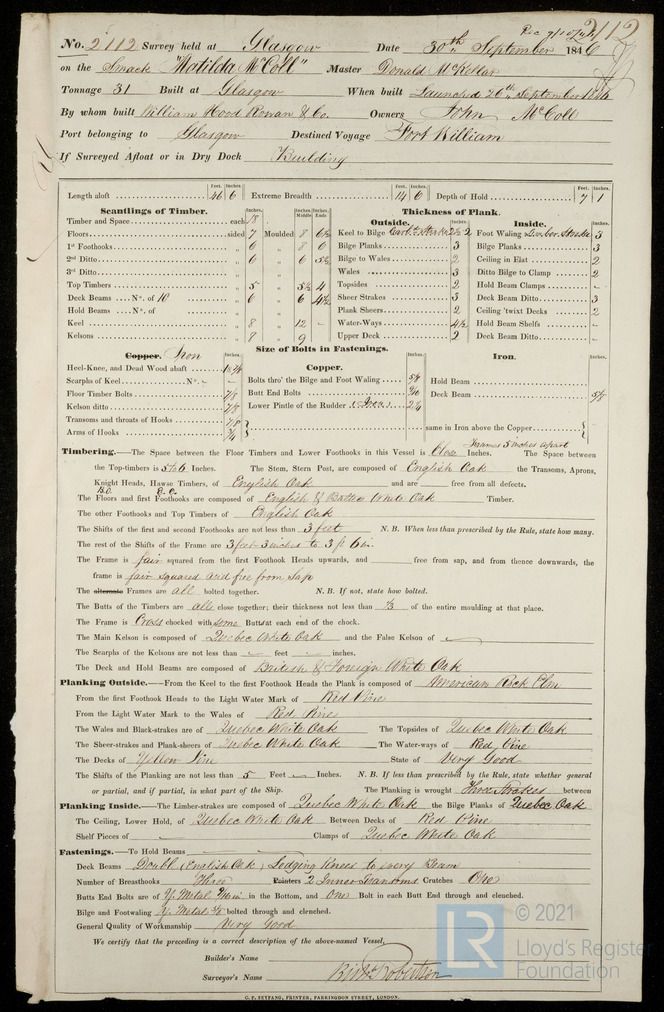 2112
No. 2112 Survey held at Glasgow Date 30th September 1846
on the Smack "Matilda McColl" Master Donald McKellar
Tonnage 31 Built at Glasgow When built Launched 26th September 1846
By whom built William Hood Rowan & Co. Owners John McColl
Port belonging to Glasgow Destined Voyage Fort William
If Surveyed Afloat or in Dry Dock Building
Feet. Inches. Feet. Inches. Feet. Inches.
Length aloft 46 6 Extreme Breadth 14 6 Depth of Hold 7 1
Scantlings of Timber. Inches. Inches Middle Inches Ends Thickness of Plank.
Outside. Inches. Inside. Inches.
Timber and Space each 18
Floors sided 7 Moulded 8 6½ Keel to Bilge Garbd. Strake 2½-2 Foot Waling Limber Strake 3
1st Foothooks „ 6 „ 8 6 Bilge Planks 3 Bilge Planks 3
2nd Ditto „ 6 „ 6 5½ Bilge to Wales 2 Ceiling in Flat 2
3rd Ditto „ Wales 3 Ditto Bilge to Clamp 2
Top Timbers „ 5 „ 5½ 4 Topsides 2 Hold Beam Clamps -
Deck Beams No. of 10 „ 6 „ 6 4½ Sheer Strakes 3 Deck Beam Ditto 3
Hold Beams No. of „ Plank Sheers 2 Ceiling 'twixt Decks 2
Keel „ 8 „ 12 - Water-Ways 4½ Hold Beam Shelfs -
Kelsons „ 8 „ 9 Upper Deck 2 Deck Beam Ditto -
Size of Bolts in Fastenings.
Copper. Iron Inches. Copper. Inches. Iron. Inches.
Heel-Knee, and Dead Wood abaft
Scarphs of Keel No. - - Bolts thro' the Bilge and Foot Waling 5/8 Hold Beam
Floor Timber Bolts 7/8 Butt End Bolts 9/16 Deck Beam 5/8
Kelson ditto 7/8 Lower Pintle of the Rudder (Iron) 2¼
Transoms and throats of Hooks 7/8
Arms of Hooks 3/4 same in Iron above the Copper
Frames 5 inches apart
Timbering.—The Space between the Floor Timbers and Lower Foothooks in this Vessel is Close Inches. The Space between
the Top-timbers is 5 to 6 Inches. The Stem, Stern Post, are composed of English Oak the Transoms, Aprons,
Knight Heads, Hawse Timbers, of English Oak and are free from all defects.
The Floors and first Foothooks are composed of English & Baltic White Oak Timber.
The other Foothooks and Top Timbers of English Oak
The Shifts of the first and second Foothooks are not less than 3 feet N. B. When less than prescribed by the Rule, state how many.
The rest of the Shifts of the Frame are 3 feet 3 inches to 3 ft 6 in.
The Frame is fair squared from the first Foothook Heads upwards, and free from sap, and from thence downwards, the
frame is fair squared and free from Sap
The alternate Frames are all bolted together. N. B. If not, state how bolted.
The Butts of the Timbers are all close together; their thickness not less than ⅓ of the entire moulding at that place.
The Frame is Cross chocked with some Butts at each end of the chock.
The Main Kelson is composed of Quebec White Oak and the False Kelson of -
The Scarphs of the Kelsons are not less than - feet - inches.
The Deck and Hold Beams are composed of British & Foreign White Oak
Planking Outside.—From the Keel to the first Foothook Heads the Plank is composed of American Rock Elm
From the first Foothook Heads to the Light Water Mark of Red Pine
From the Light Water Mark to the Wales of Red Pine
The Wales and Black-strakes are of Quebec White Oak The Topsides of Quebec White Oak
The Sheer-strakes and Plank-sheers of Quebec White Oak The Water-ways of Red Pine
The Decks of Yellow Pine State of Very Good
The Shifts of the Planking are not less than 5 Feet - Inches. N. B. If less than prescribed by the Rule, state whether general
or partial, and if partial, in what part of the Ship. The Planking is wrought Three Strakes between
Planking Inside.—The Limber-strakes are composed of Quebec White Oak the Bilge Planks of Quebec Oak
The Ceiling, Lower Hold, of Quebec White Oak Between Decks of Red Pine
Shelf Pieces of - Clamps of Quebec White Oak
Fastenings.—To Hold Beams
Deck Beams Double (English Oak) Lodging Knees to every Beam
Number of Breasthooks Three Pointers 2 Inner Transoms Crutches One
Butts End Bolts are of Y. Metal 9/16 in in the Bottom, and One Bolt in each Butt End through and clenched.
Bilge and Footwaling Y. Metal 5/8 bolted through and clenched.
General Quality of Workmanship Very Good
We certify that the preceding is a correct description of the above-named Vessel,
Builder's Name
Surveyor's Name Robertson
C. F. SEYFANG, PRINTER, FARRINGDON STREET, LONDON.
LR © 2021
Lloyd's Register
Foundation